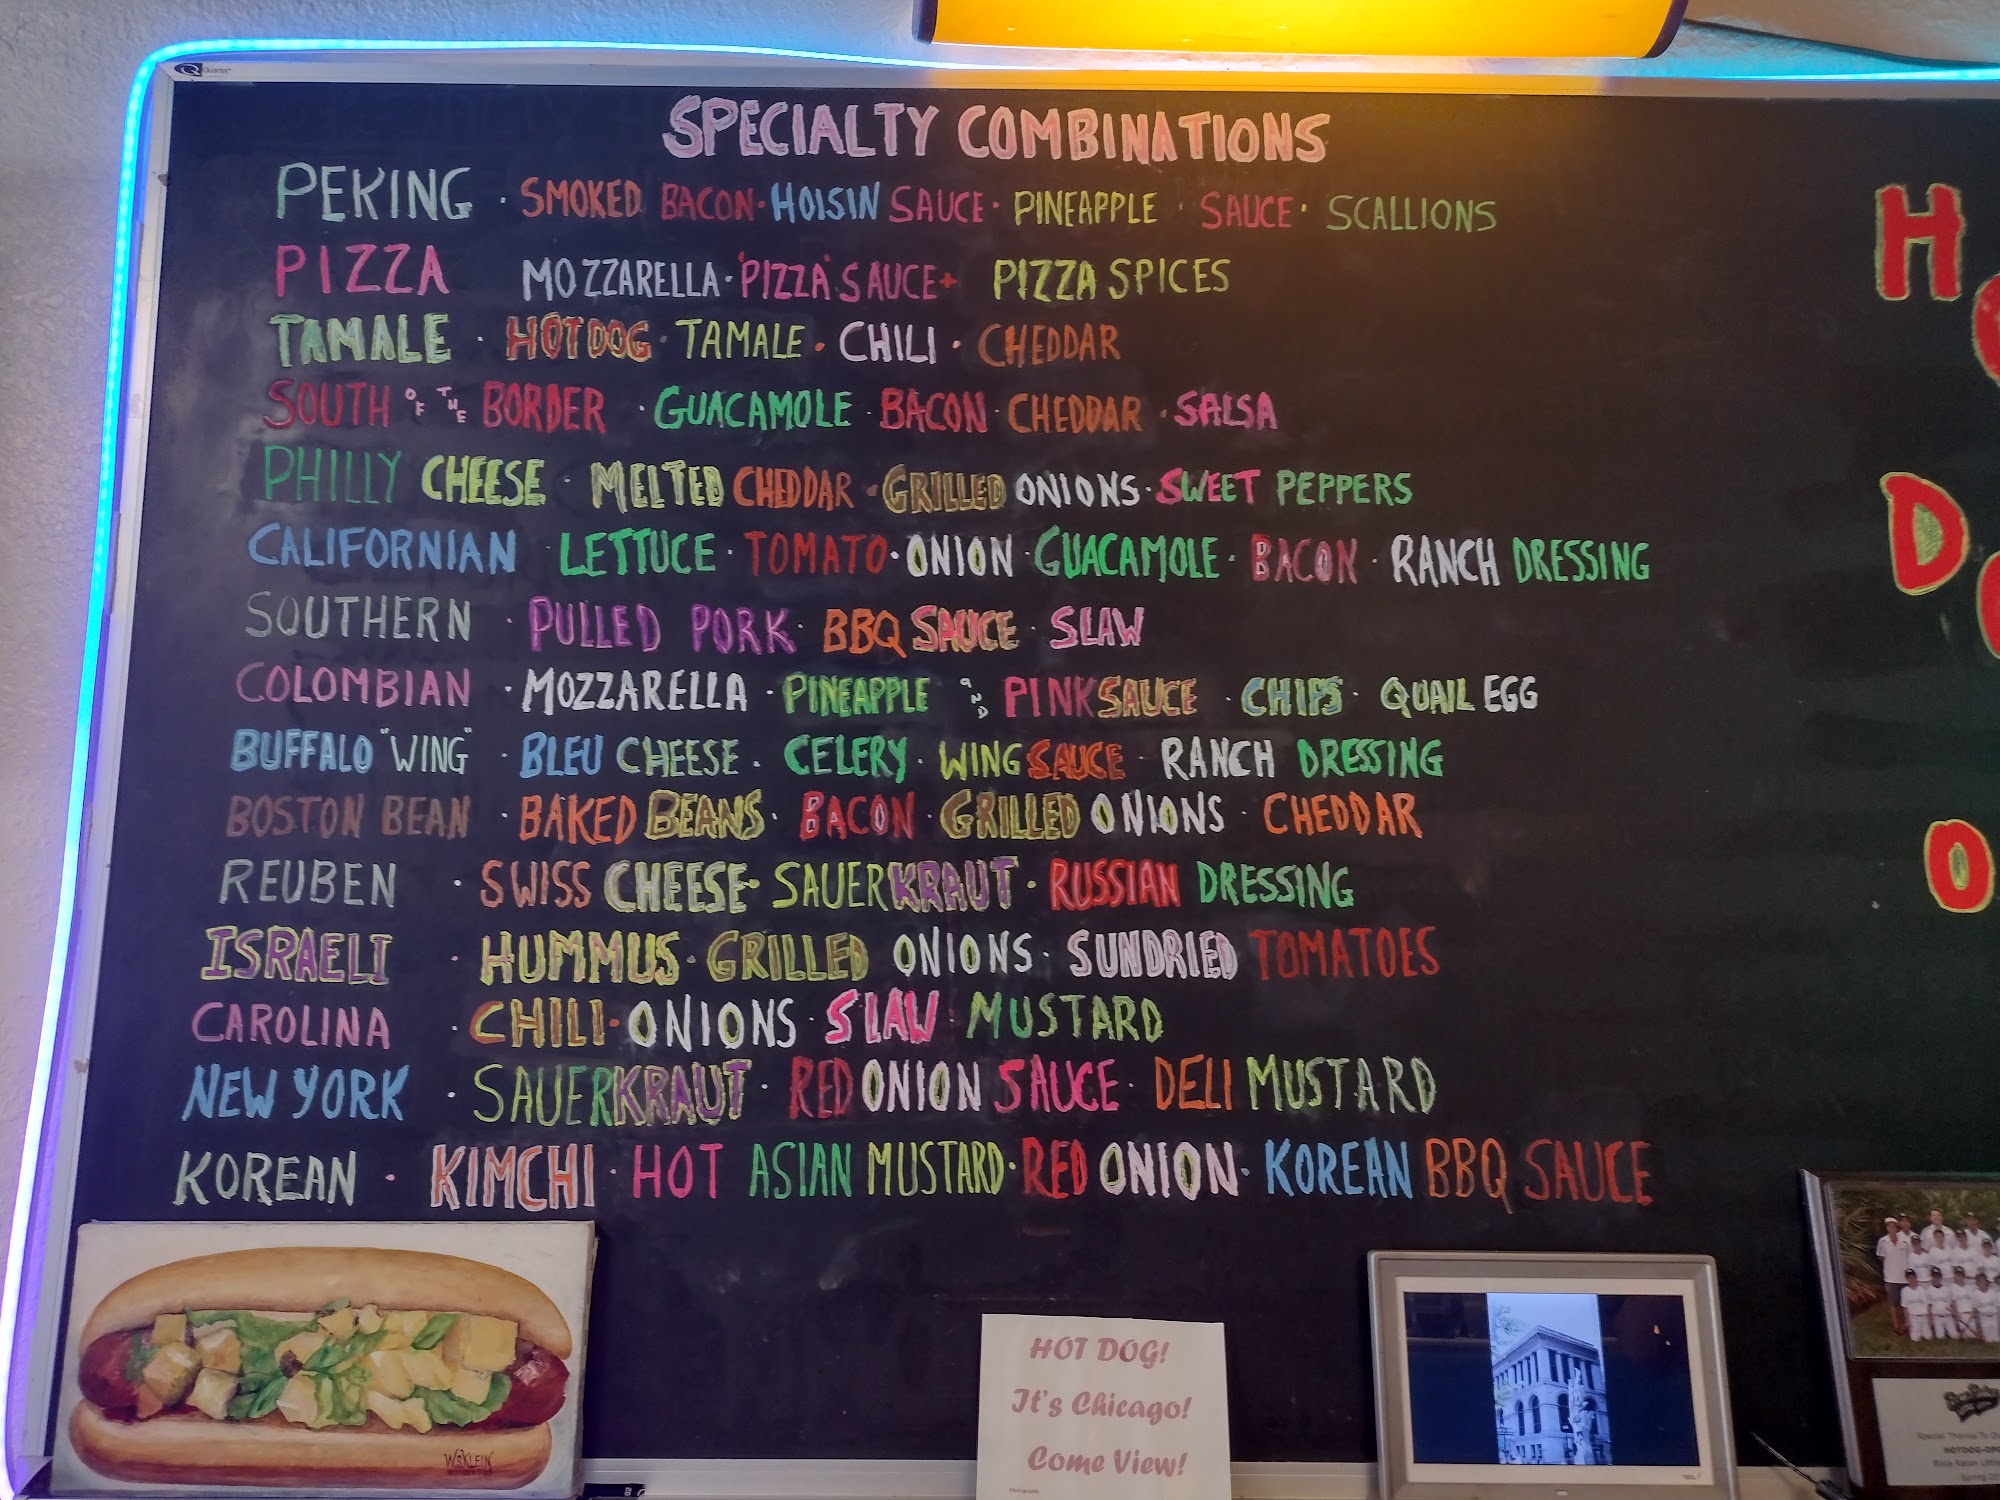 Quartet
SPECIALTY COMBINATIONS
PEKING · SMOKED BACON · HOISIN SAUCE · PINEAPPLE · SAUCE · SCALLIONS
PIZZA MOZZARELLA · 'PIZZA' SAUCE + PIZZA SPICES
TAMALE · HOT DOG · TAMALE · CHILI · CHEDDAR
SOUTH OF THE BORDER · GUACAMOLE · BACON · CHEDDAR · SALSA
PHILLY CHEESE · MELTED CHEDDAR · GRILLED ONIONS · SWEET PEPPERS
CALIFORNIAN · LETTUCE · TOMATO · ONION · GUACAMOLE · BACON · RANCH DRESSING
SOUTHERN · PULLED PORK · BBQ SAUCE · SLAW
COLOMBIAN · MOZZARELLA · PINEAPPLE AND PINK SAUCE · CHIPS · QUAIL EGG
BUFFALO "WING" · BLEU CHEESE · CELERY · WING SAUCE · RANCH DRESSING
BOSTON BEAN · BAKED BEANS · BACON · GRILLED ONIONS · CHEDDAR
REUBEN · SWISS CHEESE · SAUERKRAUT · RUSSIAN DRESSING
ISRAELI · HUMMUS · GRILLED ONIONS · SUNDRIED TOMATOES
CAROLINA · CHILI · ONIONS · SLAW · MUSTARD
NEW YORK · SAUERKRAUT · RED ONION SAUCE · DELI MUSTARD
KOREAN · KIMCHI · HOT ASIAN MUSTARD · RED ONION · KOREAN BBQ SAUCE
H
D
O
W.S.KLEIN
HOT DOG!
It's Chicago!
Come View!
Special Thanks To
HOTDOG-OPO
Boca Raton Little
Spring 20